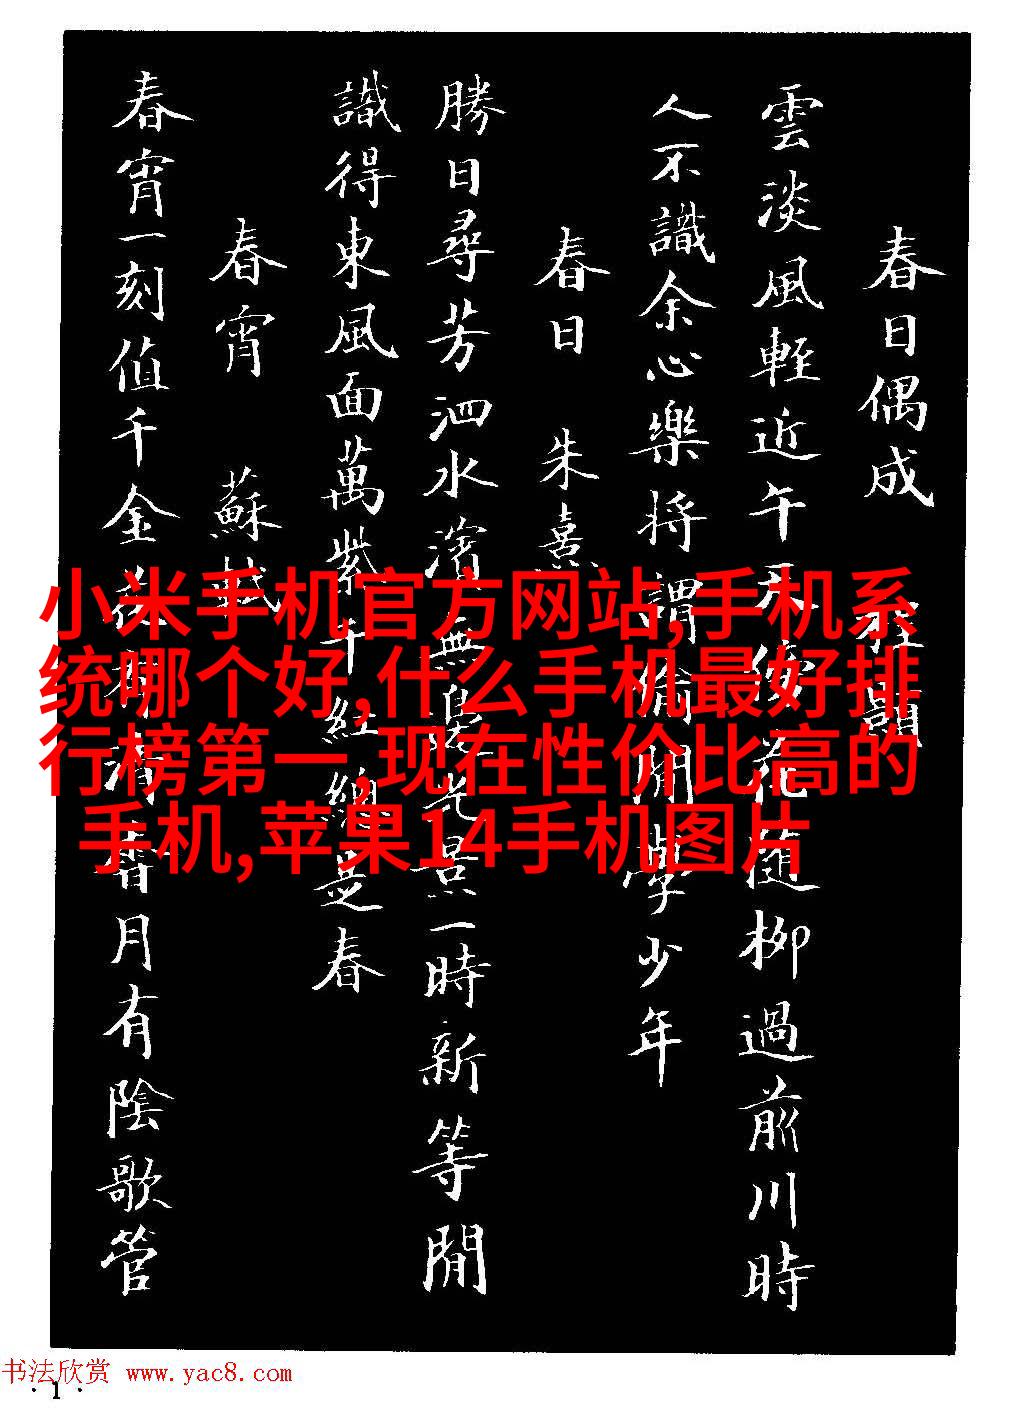 春日偶成 程顥
雲淡風輕近午天傍花隨柳過前川時
人不識余心樂將謂偷閒學少年
春日 朱熹
勝日尋芳泗水濱無邊光景一時新等閒
識得東風面萬紫千紅總是春
春宵 蘇軾
春宵一刻值千金花有清香月有陰歌管
小米手机官方网站,手机系
统哪个好,什么手机最好排
行榜第一,现在性价比高的
手机,苹果14手机图片
书法欣赏 www.yac8.com
·1·